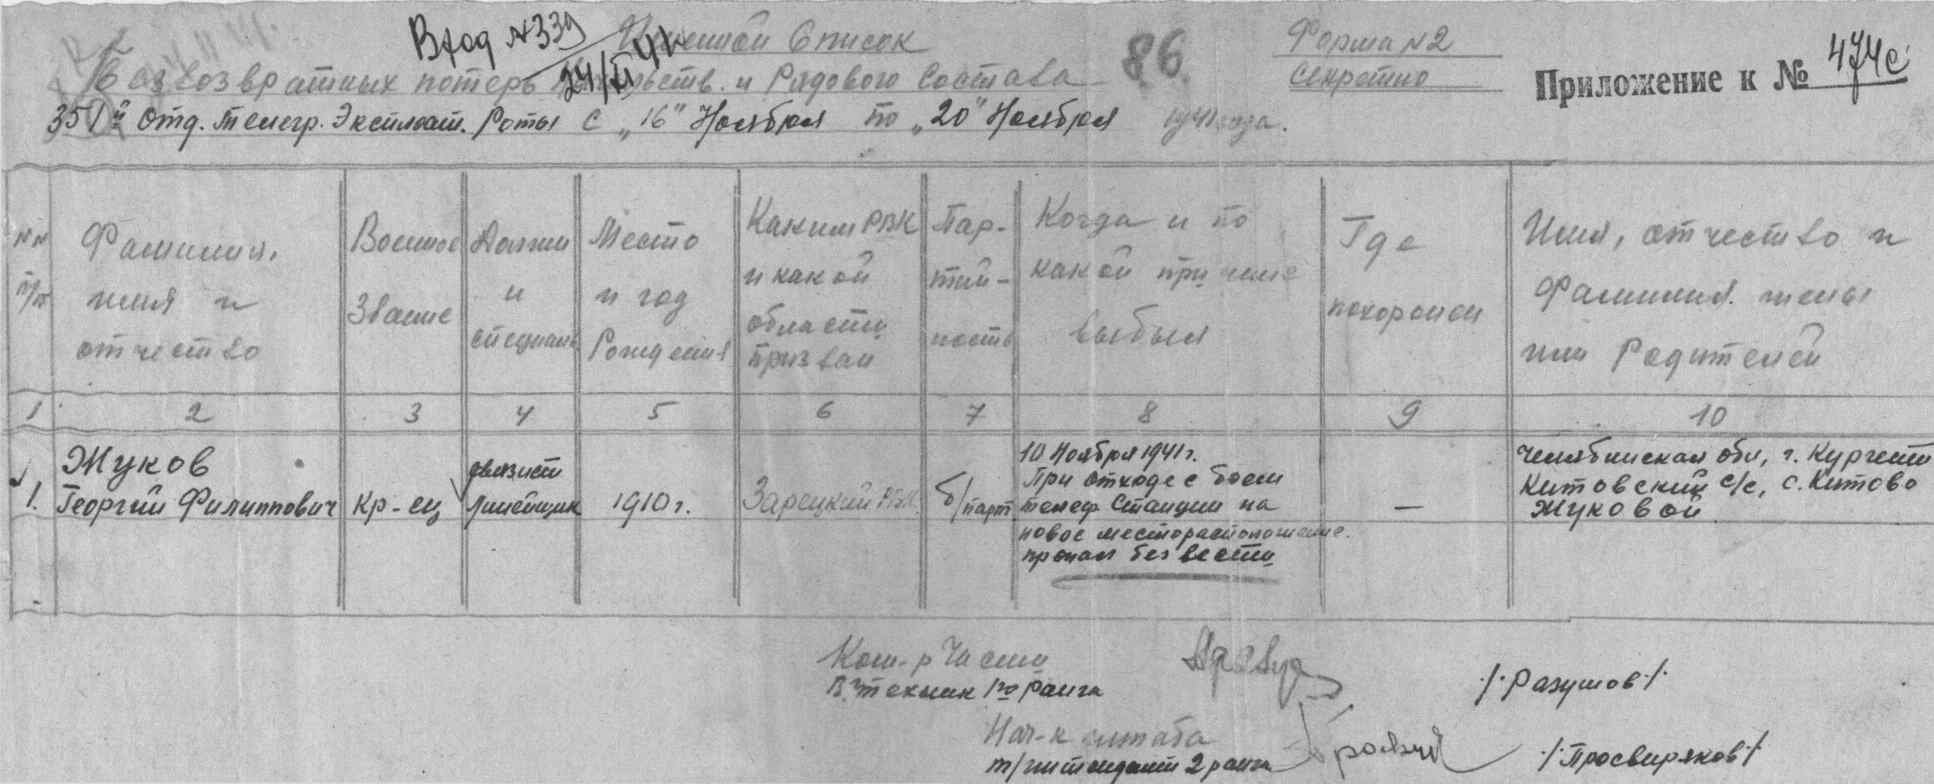 Вход N 339
24/XI 41
Именной Список
86
Форма N2
Секретно
Приложение к № 474с
Безвозвратных потерь и Рядового Состава
351й Отд. Телегр. Эксплоат. Роты с "16" Ноября по "20" Ноября 1941 года.
NN п/п
Фамилия, имя и отчество
Военное Звание
Должн и специальн
Место и год Рождения
Каким РВК и какой области призван
Пар-тий-ность
Когда и по какой причине выбыл
Где похоронен
Имя, отчество и Фамилия жены или Родителей
1 2 3 4 5 6 7 8 9 10
1.
Жуков
Георгий Филиппович
Кр-ец
связист
Линейщик
1910 г.
Зарецкий РВК
б/парт
10 Ноября 1941 г.
При отходе с боем
телеф Станции на
новое месторасположение.
пропал без вести
—
Челябинская обл,
Китовский с/с, с. Китово
Жуковой
Ком-р Части
В. техник 1го ранга
/Разумов/
Нач-к штаба
т/интендант 2 ранга
/Просвиряков/